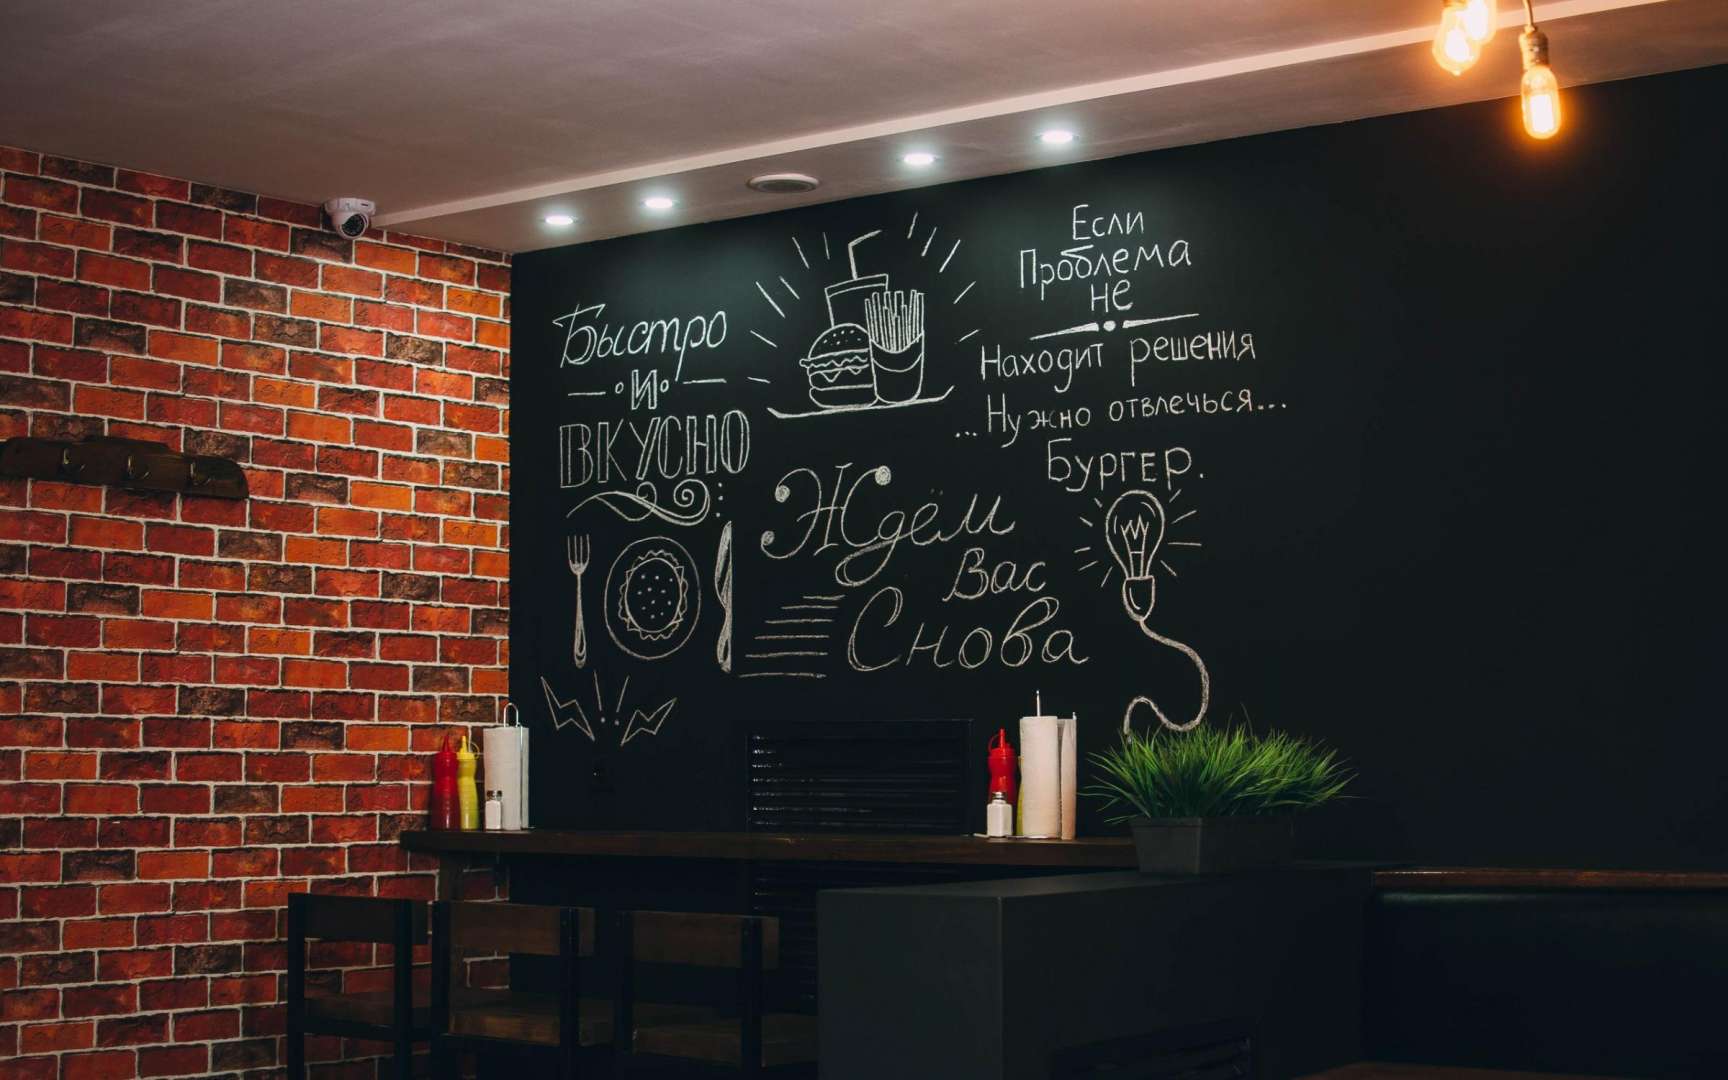 Быстро
и
ВКУСНО
Если
Проблема
не
Находит решения
...Нужно отвлечься...
Бургер.
Ждём
Вас
Снова